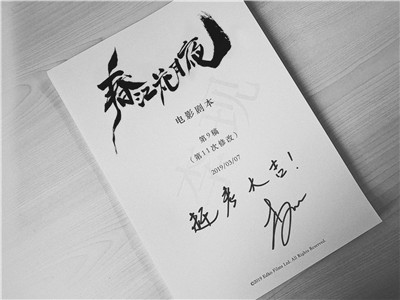 春江花月夜
电影剧本
第9稿
（第11次修改）
2019/03/07
大吉！
©2019 Edko Films Ltd. All Rights Reserved.